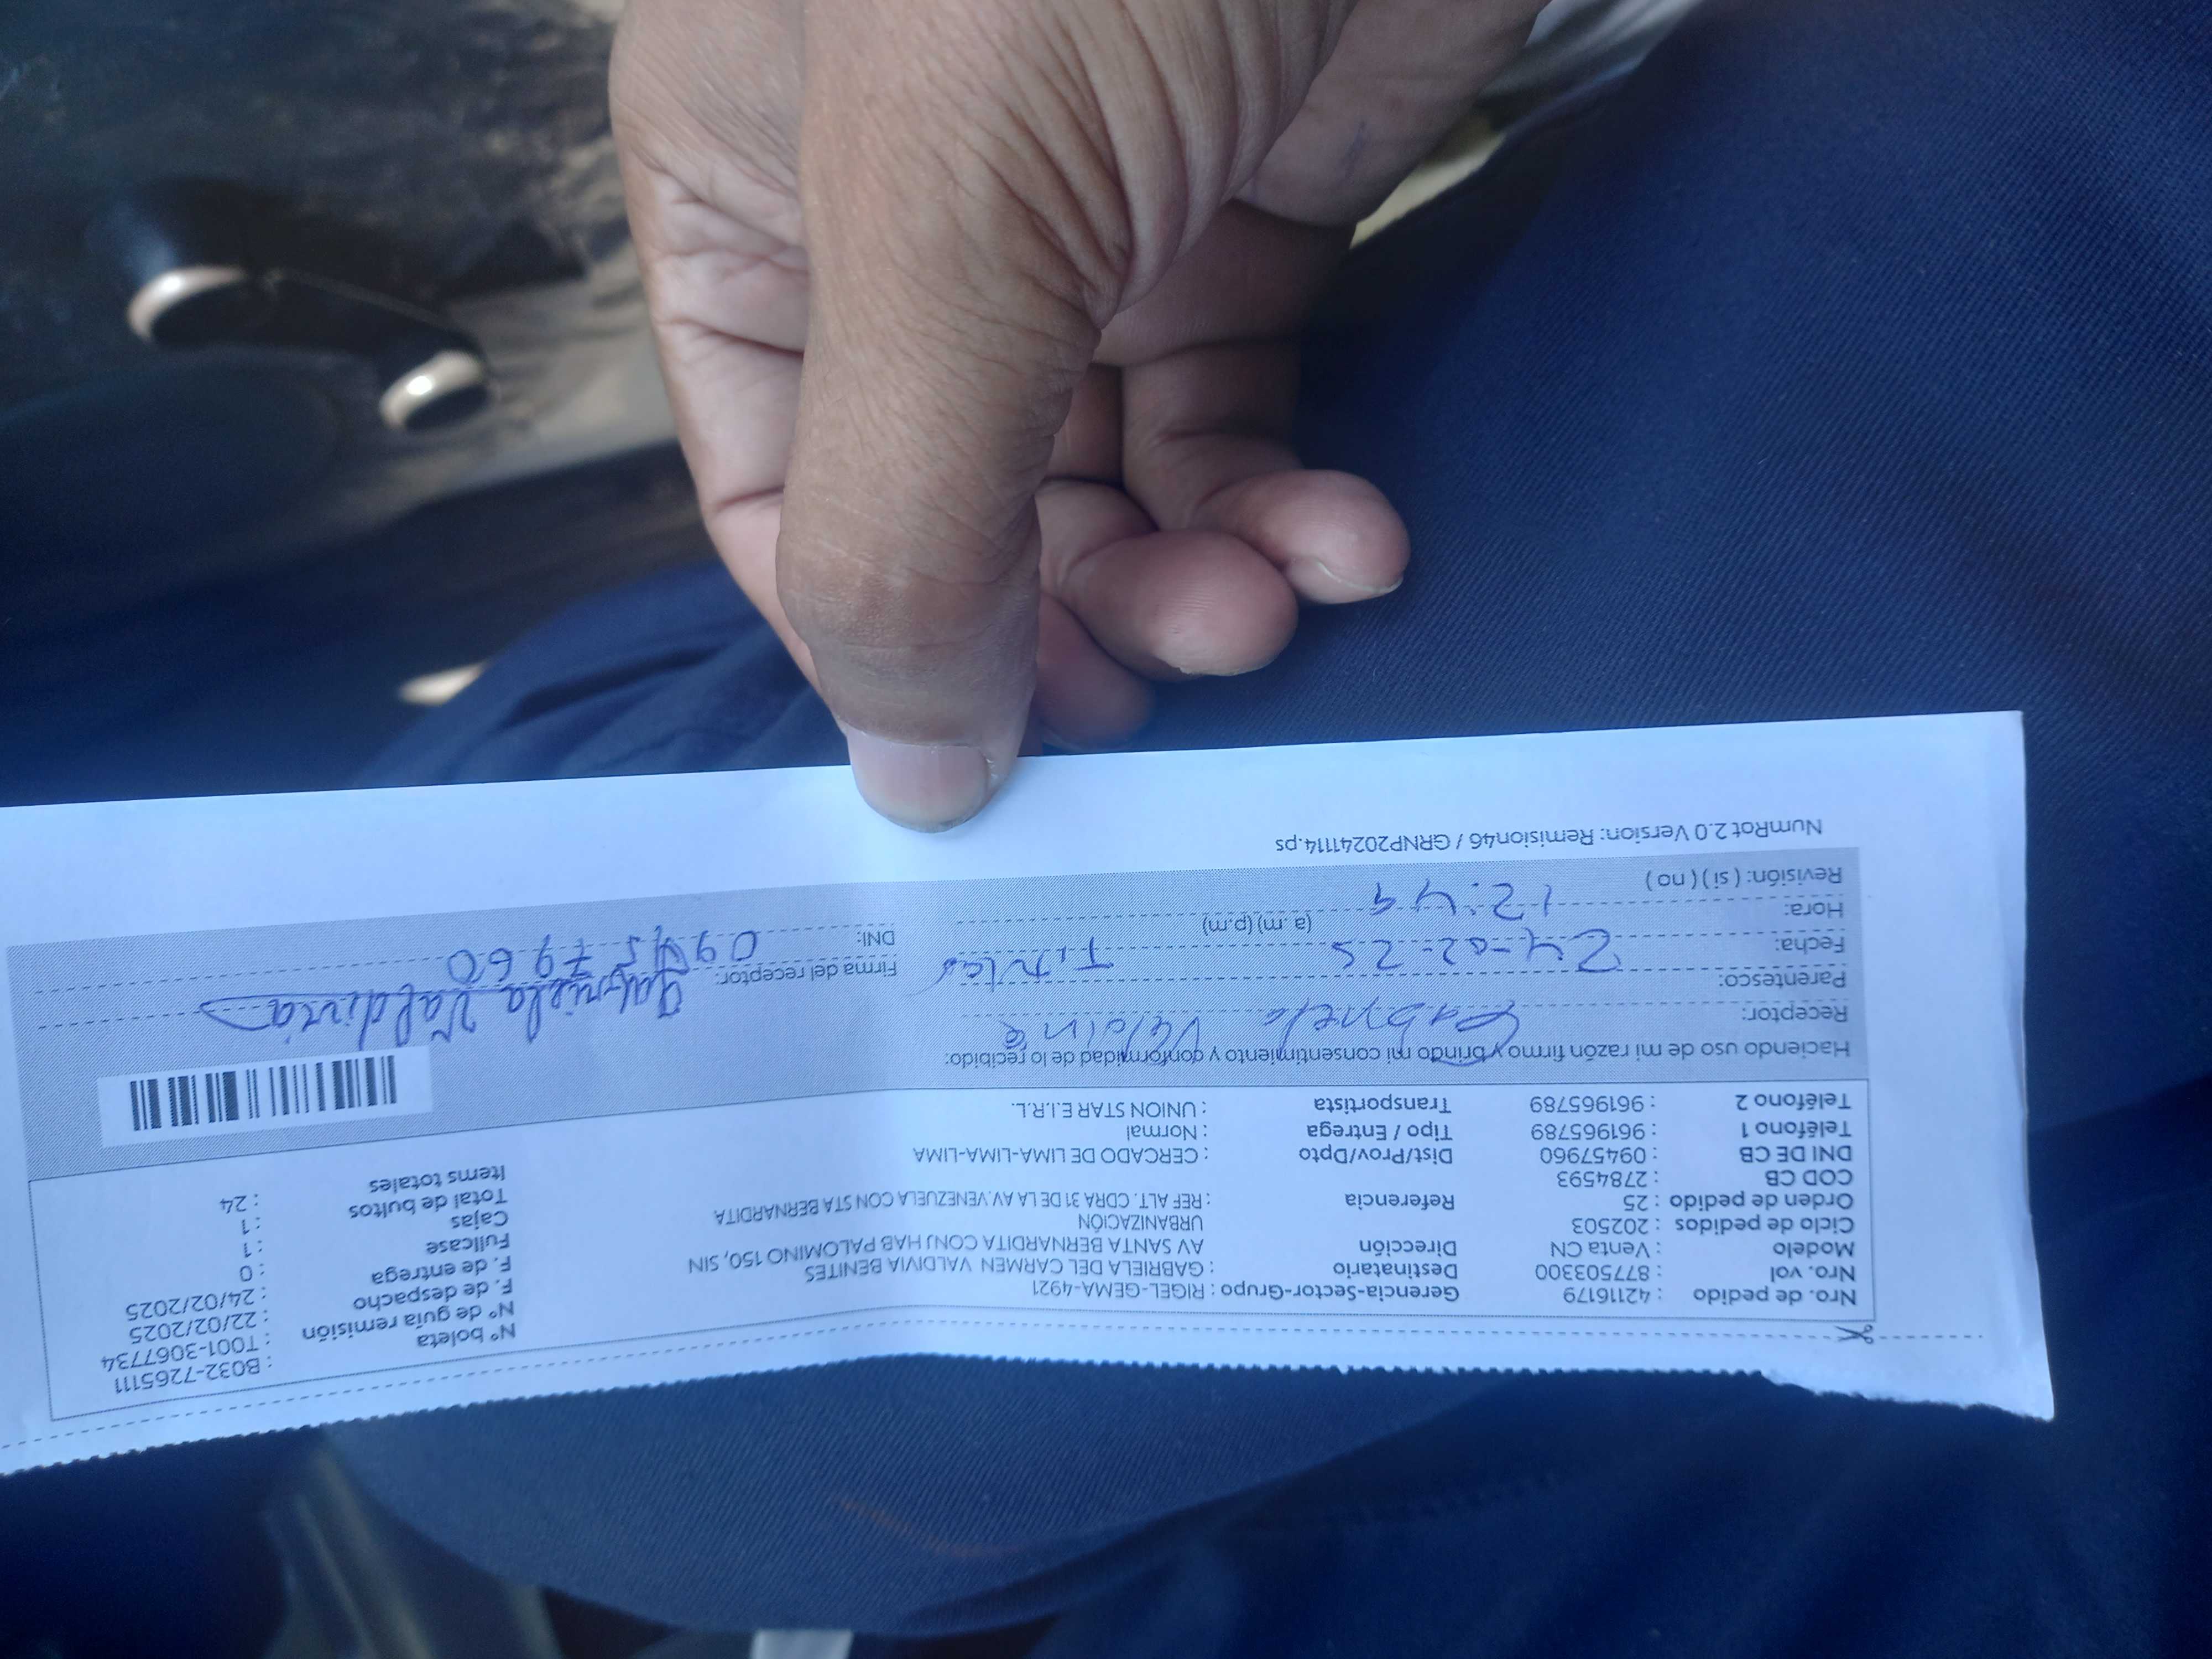 Nro. de pedido : 42116179
Nro. vol : 877503300
Modelo : Venta CN
Ciclo de pedidos : 202503
Orden de pedido : 25
COD CB : 2784593
DNI DE CB : 09457960
Teléfono 1 : 961965789
Teléfono 2 : 961965789
Gerencia-Sector-Grupo : RIGEL-GEMA-4921
Destinatario : GABRIELA DEL CARMEN VALDIVIA BENITES
Dirección AV SANTA BERNARDITA CONJ HAB PALOMINO 150, SIN
URBANIZACIÓN
Referencia : REF ALT. CDRA 31 DE LA AV.VENEZUELA CON STA BERNARDITA
Dist/Prov/Dpto : CERCADO DE LIMA-LIMA-LIMA
Tipo / Entrega : Normal
Transportista : UNION STAR E.I.R.L.
N° boleta : B032-7265111
N° de guia remisión : T001-3067734
F. de despacho : 22/02/2025
F. de entrega : 24/02/2025
Fullcase : 0
Cajas : 1
Total de bultos : 1
Items totales : 24
Haciendo uso de mi razón firmo y brindo mi consentimiento y conformidad de lo recibido:
Receptor: Gabriela
Parentesco: Titular
Fecha: 24-02-25
Hora: 12:49 (a.m) (p.m)
Revisión: ( si ) ( no )
Gabriela Valdivia
Firma del receptor:
DNI: 09457960
NumRot 2.0 Version: Remision46 / GRNP20241114.ps